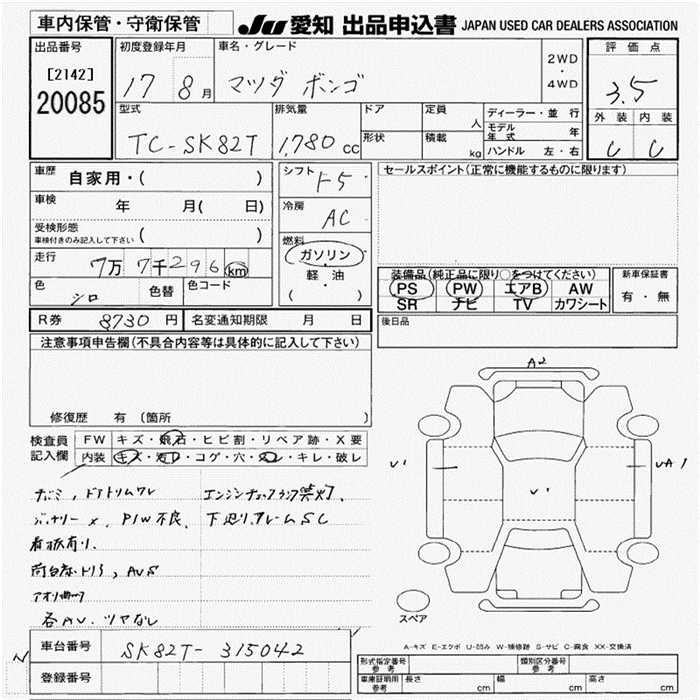 車内保管・守衛保管
JU 愛知 出品申込書 JAPAN USED CAR DEALERS ASSOCIATION
出品番号
[2142]
20085
初度登録年月
17 8月
車名・グレード
マツダ ボンゴ
2WD
・
4WD
評価点
3.5
外装 内装
C C
型式
TC-SK82T
排気量
1,780 cc
ドア
形状
定員
人
積載
kg
ディーラー・並行
モデル年式 年
ハンドル 左・右
車歴
自家用・( )
車検
年 月( 日)
受検形態
車検付きのみ記入して下さい ( )
走行
7万 7千296 km
色
シロ
色替
色コード
シフト
F5
冷房
AC
燃料
ガソリン
・
軽油
( ・ )
セールスポイント(正常に機能するものに限ります)
装備品(純正品に限り○をつけてください)
PS PW エアB AW
SR ナビ TV カワシート
新車保証書
有・無
R券 8730円 名変通知期限 月 日
後日品
注意事項申告欄(不具合内容等は具体的に記入して下さい)
修復歴 有(箇所 )
検査員
記入欄
FW キズ・飛石・ヒビ割・リペア跡・X要
内装 キズ・汚れ・コゲ・穴・スレ・キレ・破レ
エンジンチェックランプ点灯、
P/W不良
下廻り、フレームSC
看板有り、
各AU、ツヤなし
A2
U1
U1
UA1
スペア
A-キズ E-エクボ U-凹み W-補修跡 S-サビ C-腐食 XX-交換済
車台番号
SK82T-315042
登録番号
形式指定番号
参考
類別区分番号
参考
車庫証明用
参考
長さ cm 幅 cm 高さ cm